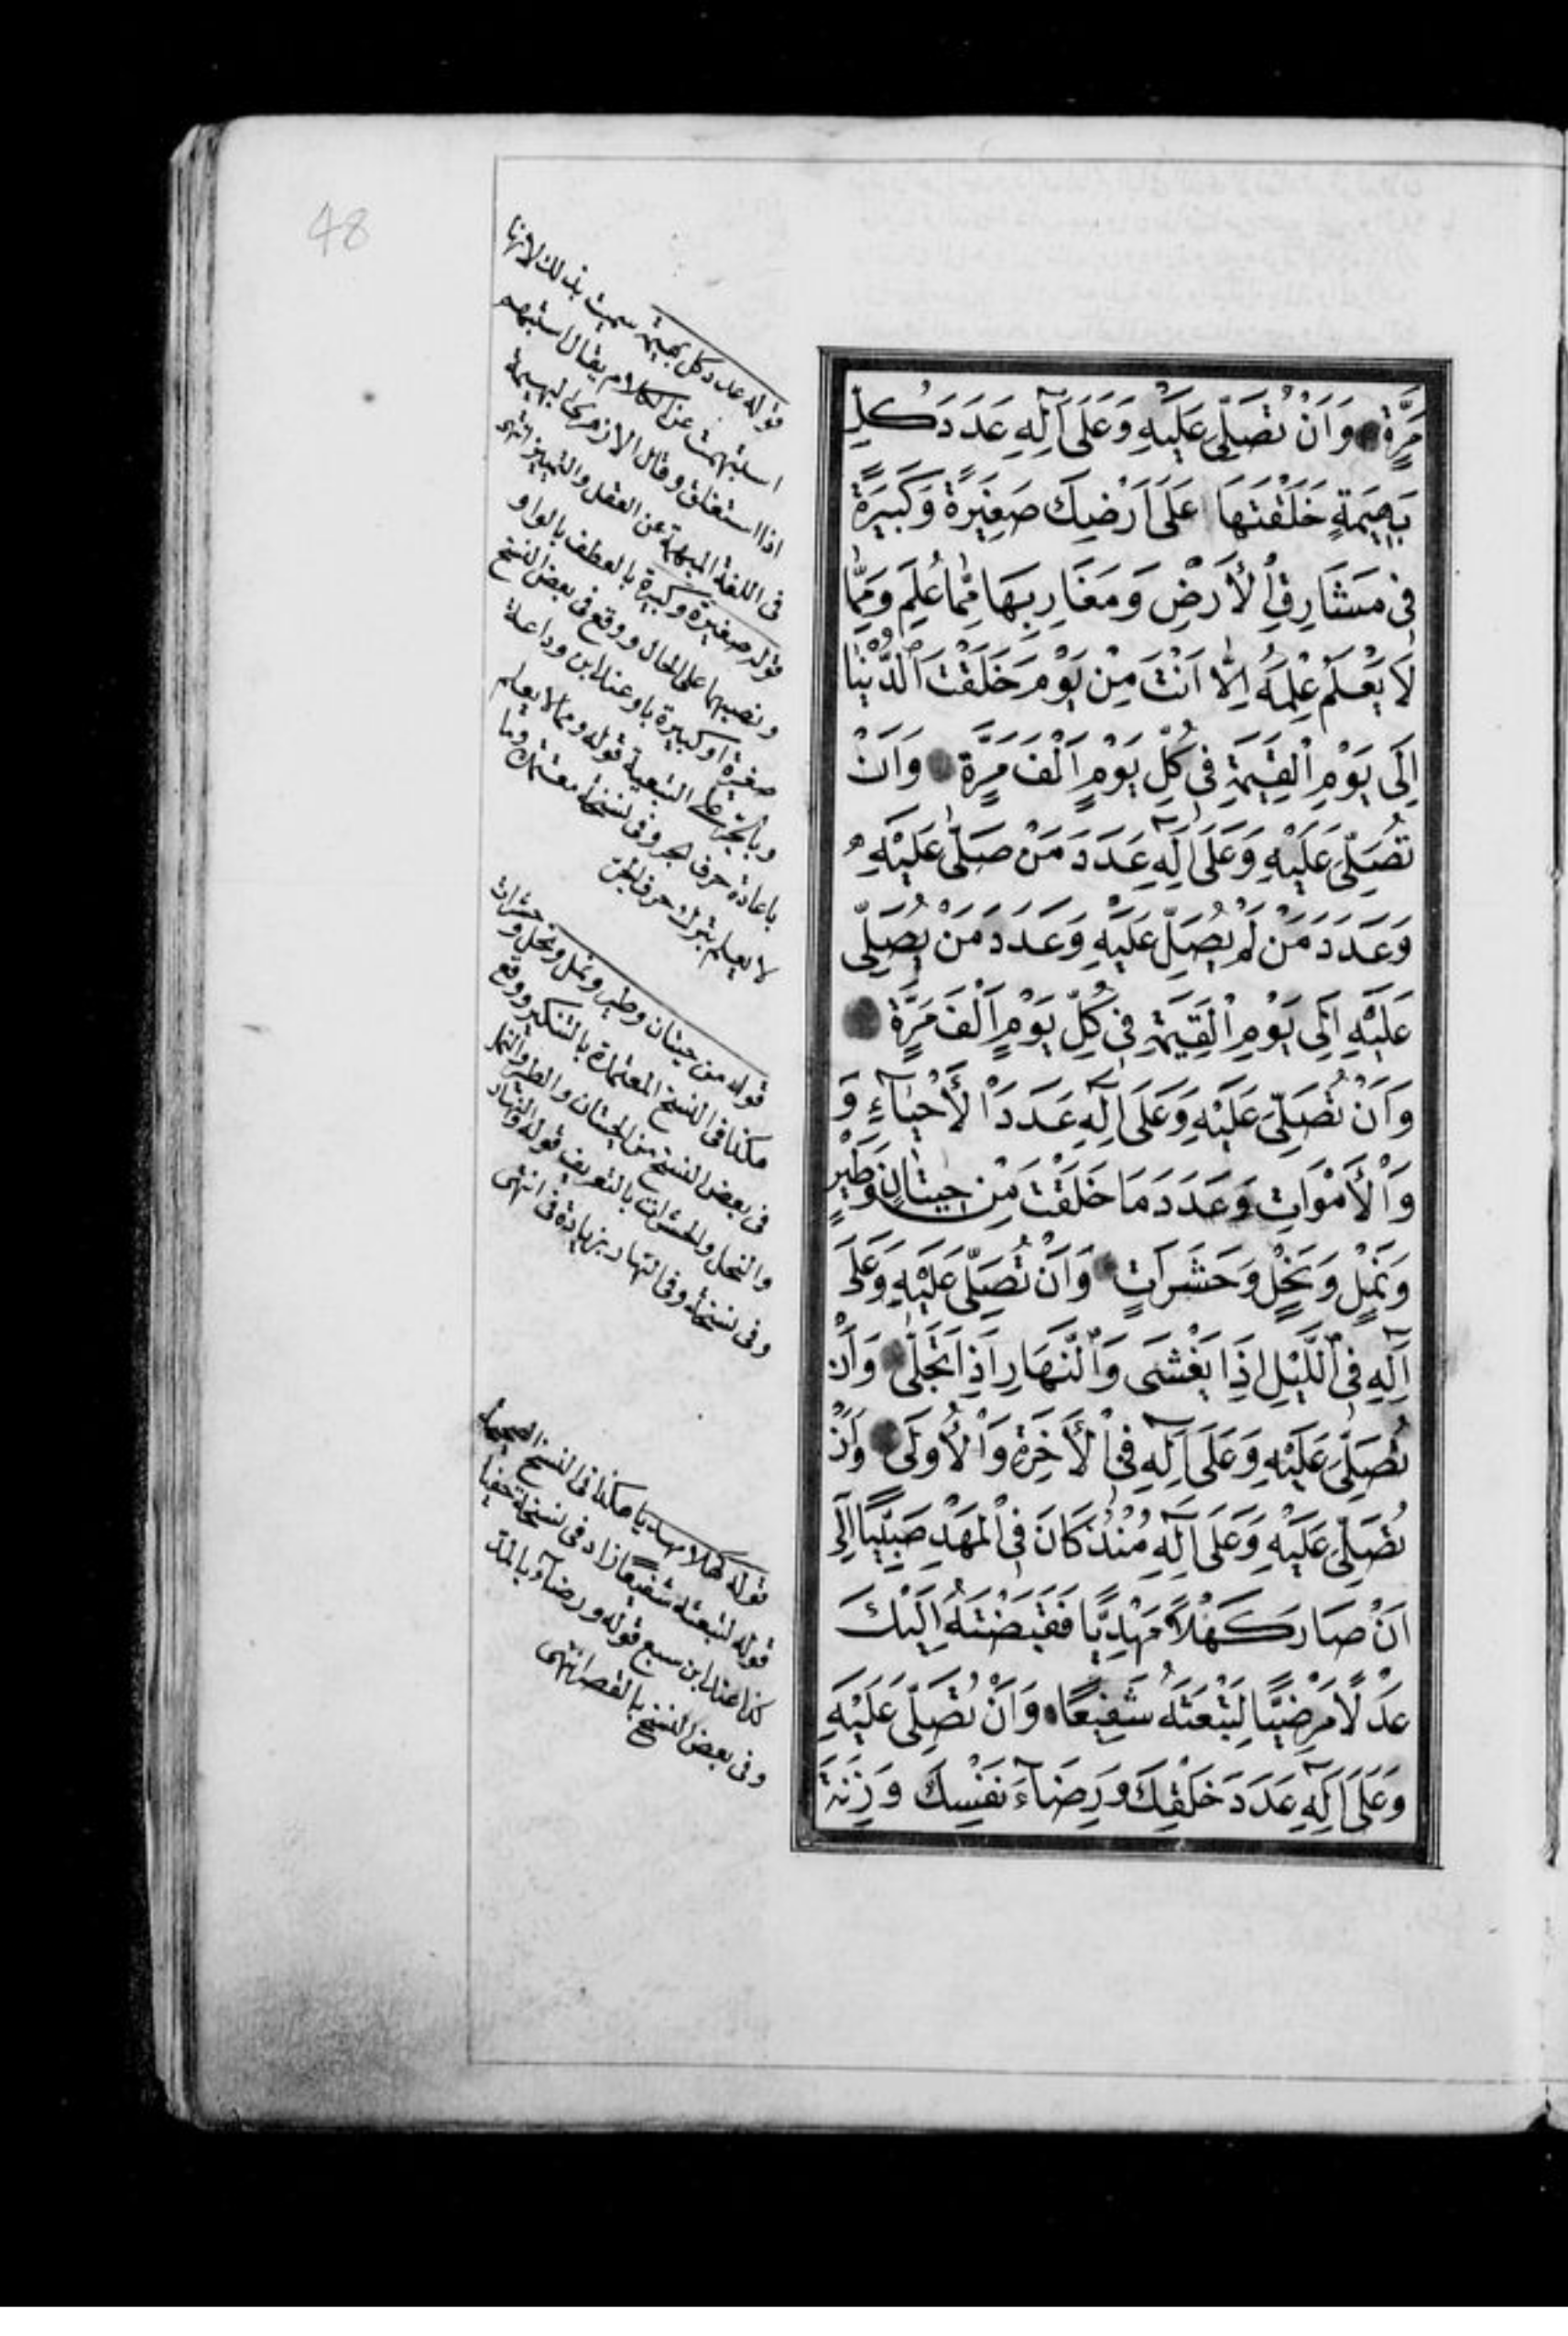 48
مَرَّةٍ وَاَنْ تُصَلِّىَ عَلَيْهِ وَعَلَى آلِهِ عَدَدَ كُلِّ
بَهِيمَةٍ خَلَقْتَهَا عَلَى اَرْضِكَ صَغِيرَةً وَكَبِيرَةً
فِى مَشَارِقِ الْأَرْضِ وَمَغَارِبِهَا مِمَّا عُلِمَ وَمِمَّا
لَا يَعْلَمُ عِلْمَهُ اِلَّا اَنْتَ مِنْ يَوْمِ خَلَقْتَ الدُّنْيَا
اِلَى يَوْمِ الْقِيٰمَةِ فِى كُلِّ يَوْمٍ اَلْفَ مَرَّةٍ وَاَنْ
تُصَلِّىَ عَلَيْهِ وَعَلَى آلِهِ عَدَدَ مَنْ صَلَّى عَلَيْهِ
وَعَدَدَ مَنْ لَمْ يُصَلِّ عَلَيْهِ وَعَدَدَ مَنْ يُصَلِّى
عَلَيْهِ اِلَى يَوْمِ الْقِيٰمَةِ فِى كُلِّ يَوْمٍ اَلْفَ مَرَّةٍ
وَاَنْ تُصَلِّىَ عَلَيْهِ وَعَلَى آلِهِ عَدَدَ الْأَحْيَآءِ وَ
وَالْأَمْوَاتِ وَعَدَدَ مَا خَلَقْتَ مِنْ حِيتَانٍ وَطَيْرٍ
وَنَمْلٍ وَنَحْلٍ وَحَشَرَاتٍ وَاَنْ تُصَلِّىَ عَلَيْهِ وَعَلَى
آلِهِ فِى اللَّيْلِ اِذَا يَغْشَى وَالنَّهَارِ اِذَا تَجَلَّى وَاَنْ
تُصَلِّىَ عَلَيْهِ وَعَلَى آلِهِ فِى الْأَخِرَةِ وَالْأُولَى وَاَنْ
تُصَلِّىَ عَلَيْهِ وَعَلَى آلِهِ مُنْذُ كَانَ فِى الْمَهْدِ صَبِيًّا اِلَى
اَنْ صَارَ كَهْلًا مَهْدِيًّا فَقَبَضْتَهُ اِلَيْكَ
عَدْلًا مَرْضِيًّا لِتَبْعَثَهُ شَفِيعًا وَاَنْ تُصَلِّىَ عَلَيْهِ
وَعَلَى آلِهِ عَدَدَ خَلْقِكَ وَرِضَآءَ نَفْسِكَ وَزِنَةَ
قوله عدد كل بهيمة سميت بذلك لانها
استبهمت عن الكلام يقال استبهم
اذا استغلق وقال الازهرى البهيمة
فى اللغة المبهمة عن العقل والتمييز انتهى
قوله صغيرة وكبيرة بالعطف بالواو
ونصبهما على الحال ووقع فى بعض النسخ
صغيرة او كبيرة باو وعند ابن وداعة
وبالجر على التبعية قوله ومما لا يعلم
باعادة حرف الجر وفى نسخة معتمدة وما
لا يعلم بترك حرف الجر
قوله من حيتان وطير ونمل ونحل وحشرات
هكذا فى النسخ المعتمدة بالتنكير ووقع
فى بعض النسخ من الحيتان والطير والنمل
والنحل والحشرات بالتعريف قوله والنهار
وفى نسخة وفى النهار بزيادة فى انتهى
قوله كهلا مهديا هكذا فى النسخ الصحيحة
قوله لتبعثه شفيعا زاد فى نسخة حفيا
كذا عند ابن سبع قوله ورضآء بالمد
وفى بعض النسخ بالقصر انتهى